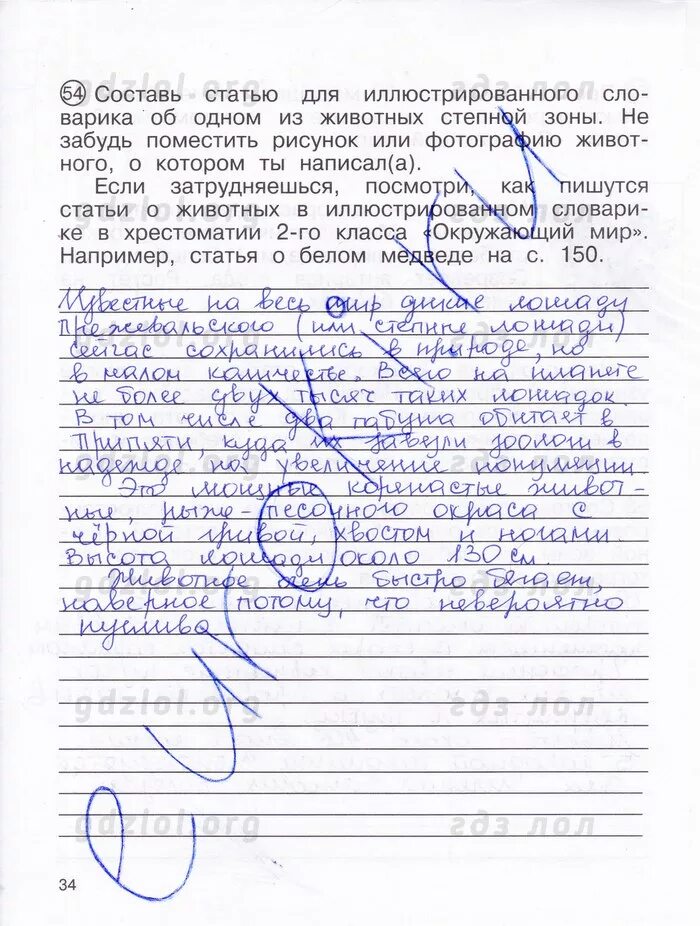 gdzlol.org гдз лол
54 Составь статью для иллюстрированного сло-
варика об одном из животных степной зоны. Не
забудь поместить рисунок или фотографию живот-
ного, о котором ты написал(а).
Если затрудняешься, посмотри, как пишутся
статьи о животных в иллюстрированном словари-
gdzlol.org гдз лол
ке в хрестоматии 2-го класса «Окружающий мир».
Например, статья о белом медведе на с. 150.
Известные на весь мир дикие лошади
Пржевальского (или степные лошади)
gdzlol.org гдз лол
сейчас сохранились в природе, но
в малом количестве. Всего на планете
не более двух тысяч таких лошадок.
В том числе два табуна обитает в
Припяти, куда их завезли зоологи в
gdzlol.org гдз лол
надежде на увеличение популяции.
Это мощные коренастые живот-
ные, рыже-песочного окраса с
чёрной гривой, хвостом и ногами.
Высота лошади около 130 см.
gdzlol.org гдз лол
Животное очень быстро бегает,
наверное потому, что невероятно
пуглива
gdzlol.org гдз лол
gdzlol.org гдз лол
34